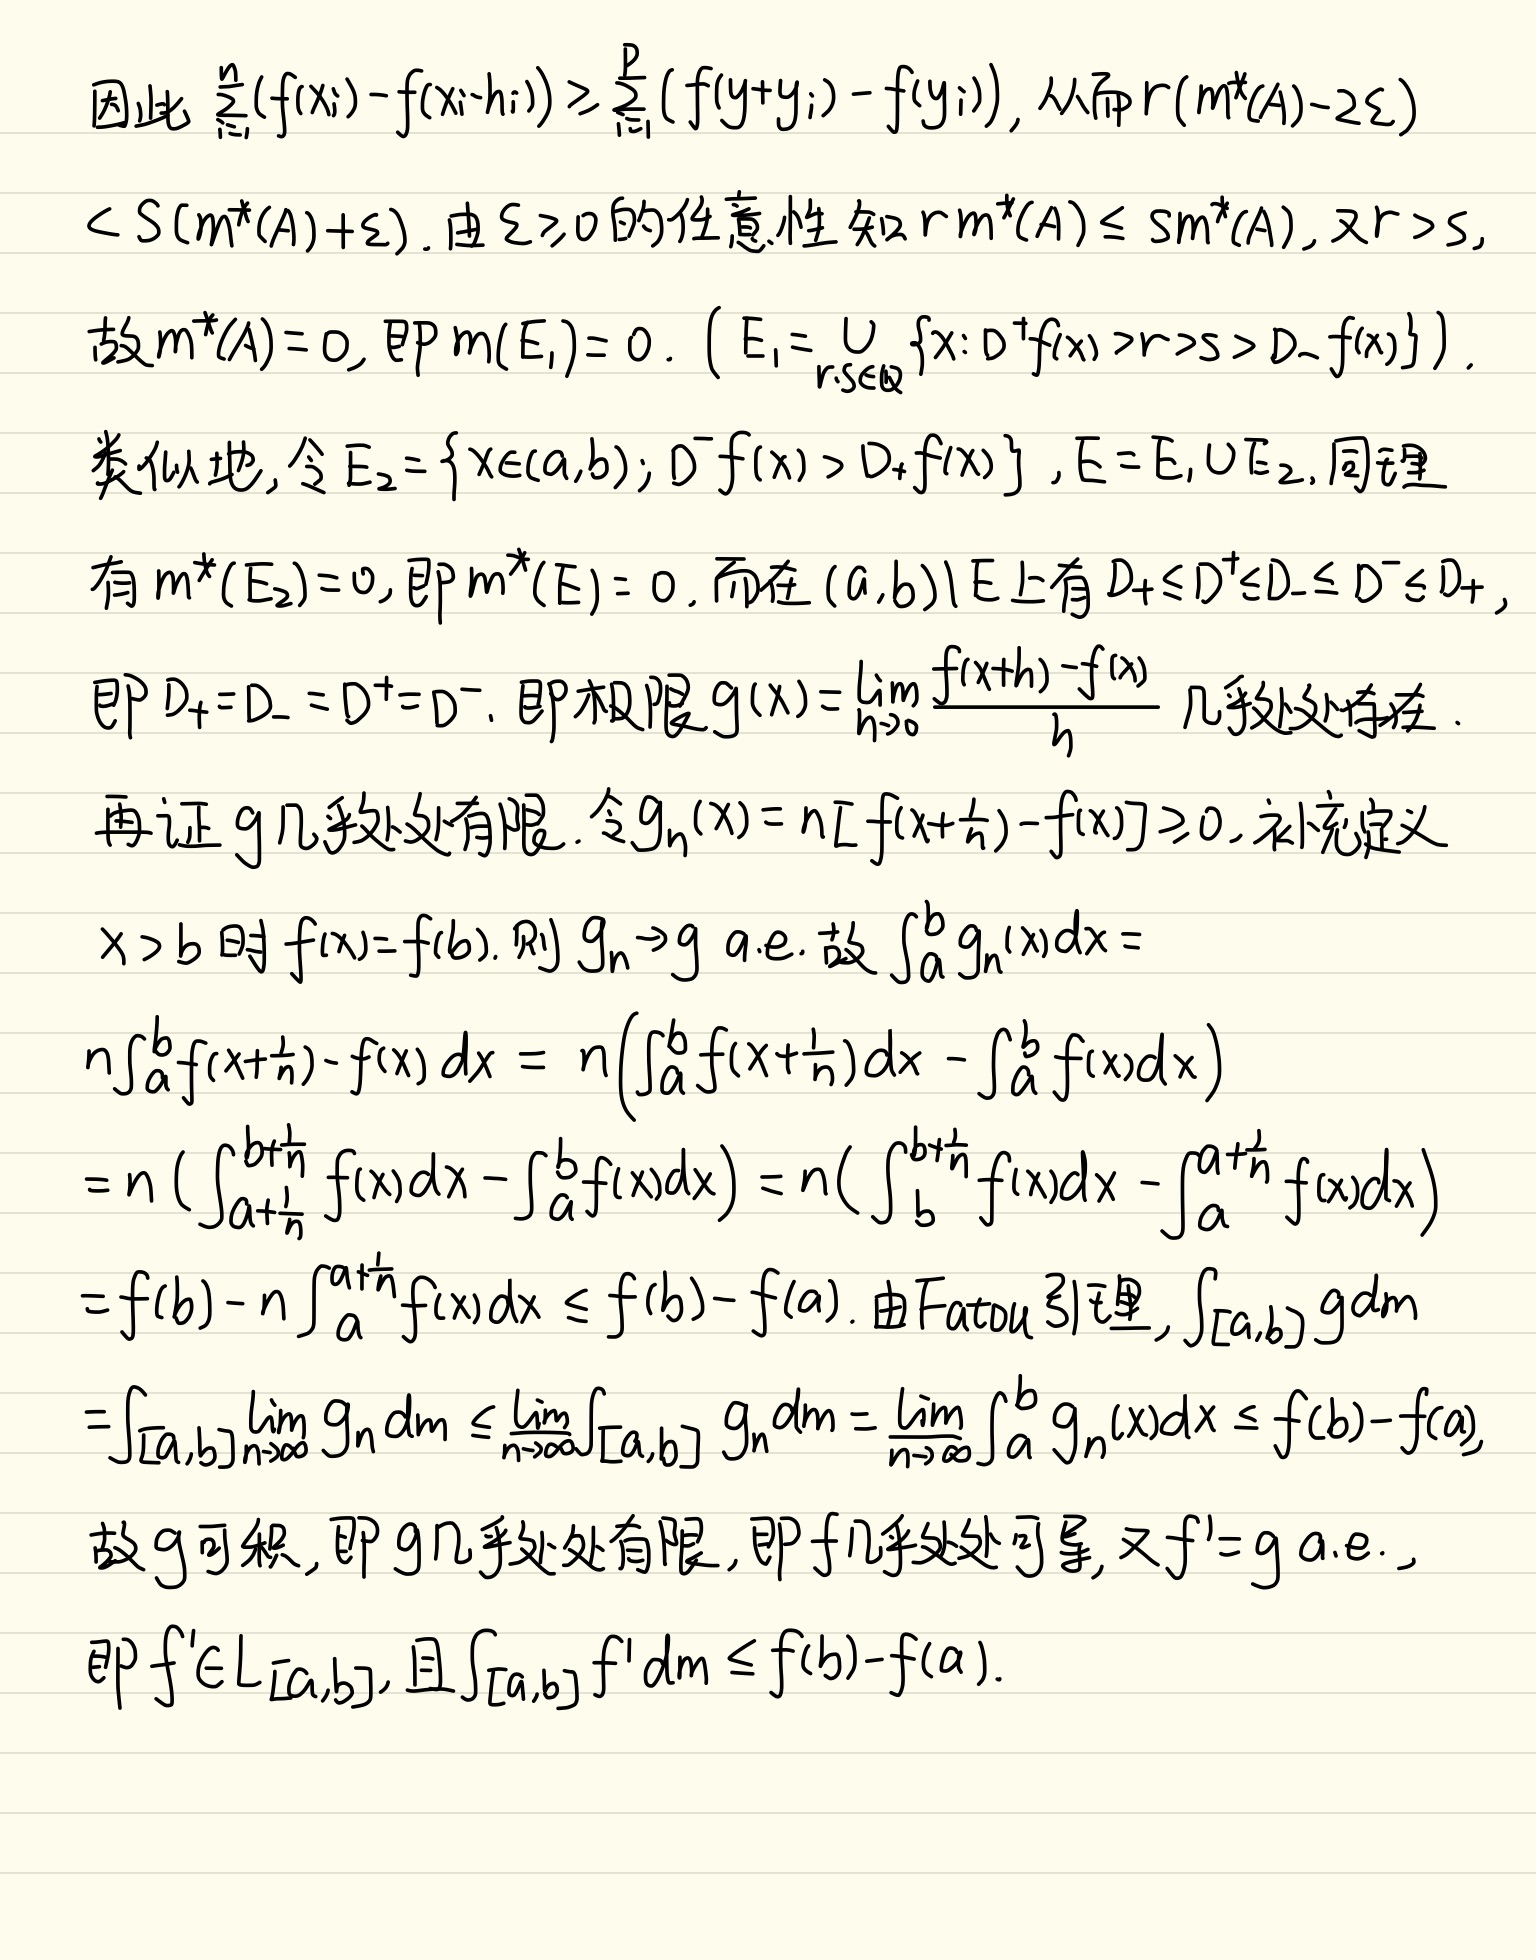 因此 $\sum_{i=1}^{n}(f(x_i)-f(x_i-h_i)) \geq \sum_{i=1}^{p}(f(y+y_i)-f(y_i))$, 从而 $r(m^*(A)-2\varepsilon)$
$< S(m^*(A)+\varepsilon)$. 由 $\varepsilon \geq 0$ 的任意性知 $rm^*(A) \leq sm^*(A)$, 又 $r>s$,
故 $m^*(A)=0$, 即 $m(E_1)=0$. $(E_1=\bigcup_{r.s\in\mathbb{Q}}\{x: D^+f(x)>r>s>D_-f(x)\})$.
类似地, 令 $E_2=\{x\in(a,b); D^-f(x)>D_+f(x)\}$, $E=E_1\cup E_2$, 同理
有 $m^*(E_2)=0$, 即 $m^*(E)=0$. 而在 $(a,b)\backslash E$ 上有 $D_+\leq D^+\leq D_-\leq D^-\leq D_+$,
即 $D_+=D_-=D^+=D^-$. 即极限 $g(x)=\lim_{h\to 0}\frac{f(x+h)-f(x)}{h}$ 几乎处处存在.
再证 g 几乎处处有限. 令 $g_n(x)=n[f(x+\frac{1}{n})-f(x)]\geq 0$, 补充定义
$x>b$ 时 $f(x)=f(b)$. 则 $g_n\to g$ a.e. 故 $\int_a^b g_n(x)dx=$
$n\int_a^b f(x+\frac{1}{n})-f(x)\,dx = n\left(\int_a^b f(x+\frac{1}{n})dx-\int_a^b f(x)dx\right)$
$=n\left(\int_{a+\frac{1}{n}}^{b+\frac{1}{n}} f(x)dx-\int_a^b f(x)dx\right)=n\left(\int_b^{b+\frac{1}{n}} f(x)dx-\int_a^{a+\frac{1}{n}} f(x)dx\right)$
$=f(b)-n\int_a^{a+\frac{1}{n}} f(x)dx\leq f(b)-f(a)$. 由Fatou引理, $\int_{[a,b]} gdm$
$=\int_{[a,b]}\lim_{n\to\infty} g_n dm\leq\underline{\lim}_{n\to\infty}\int_{[a,b]} g_n dm=\underline{\lim}_{n\to\infty}\int_a^b g_n(x)dx\leq f(b)-f(a)$,
故 g 可积, 即 g 几乎处处有限, 即 f 几乎处处可导, 又 $f'=g$ a.e.,
即 $f'\in L_{[a,b]}$, 且 $\int_{[a,b]} f'dm\leq f(b)-f(a)$.